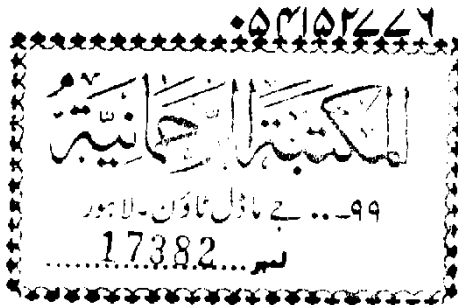 ۰۵۴۱۵۲۷۷۶
المكتبة الرحمانية
۹۹... جے ماڈل ٹاؤن ۔ لاہور
نمبر ....17382....